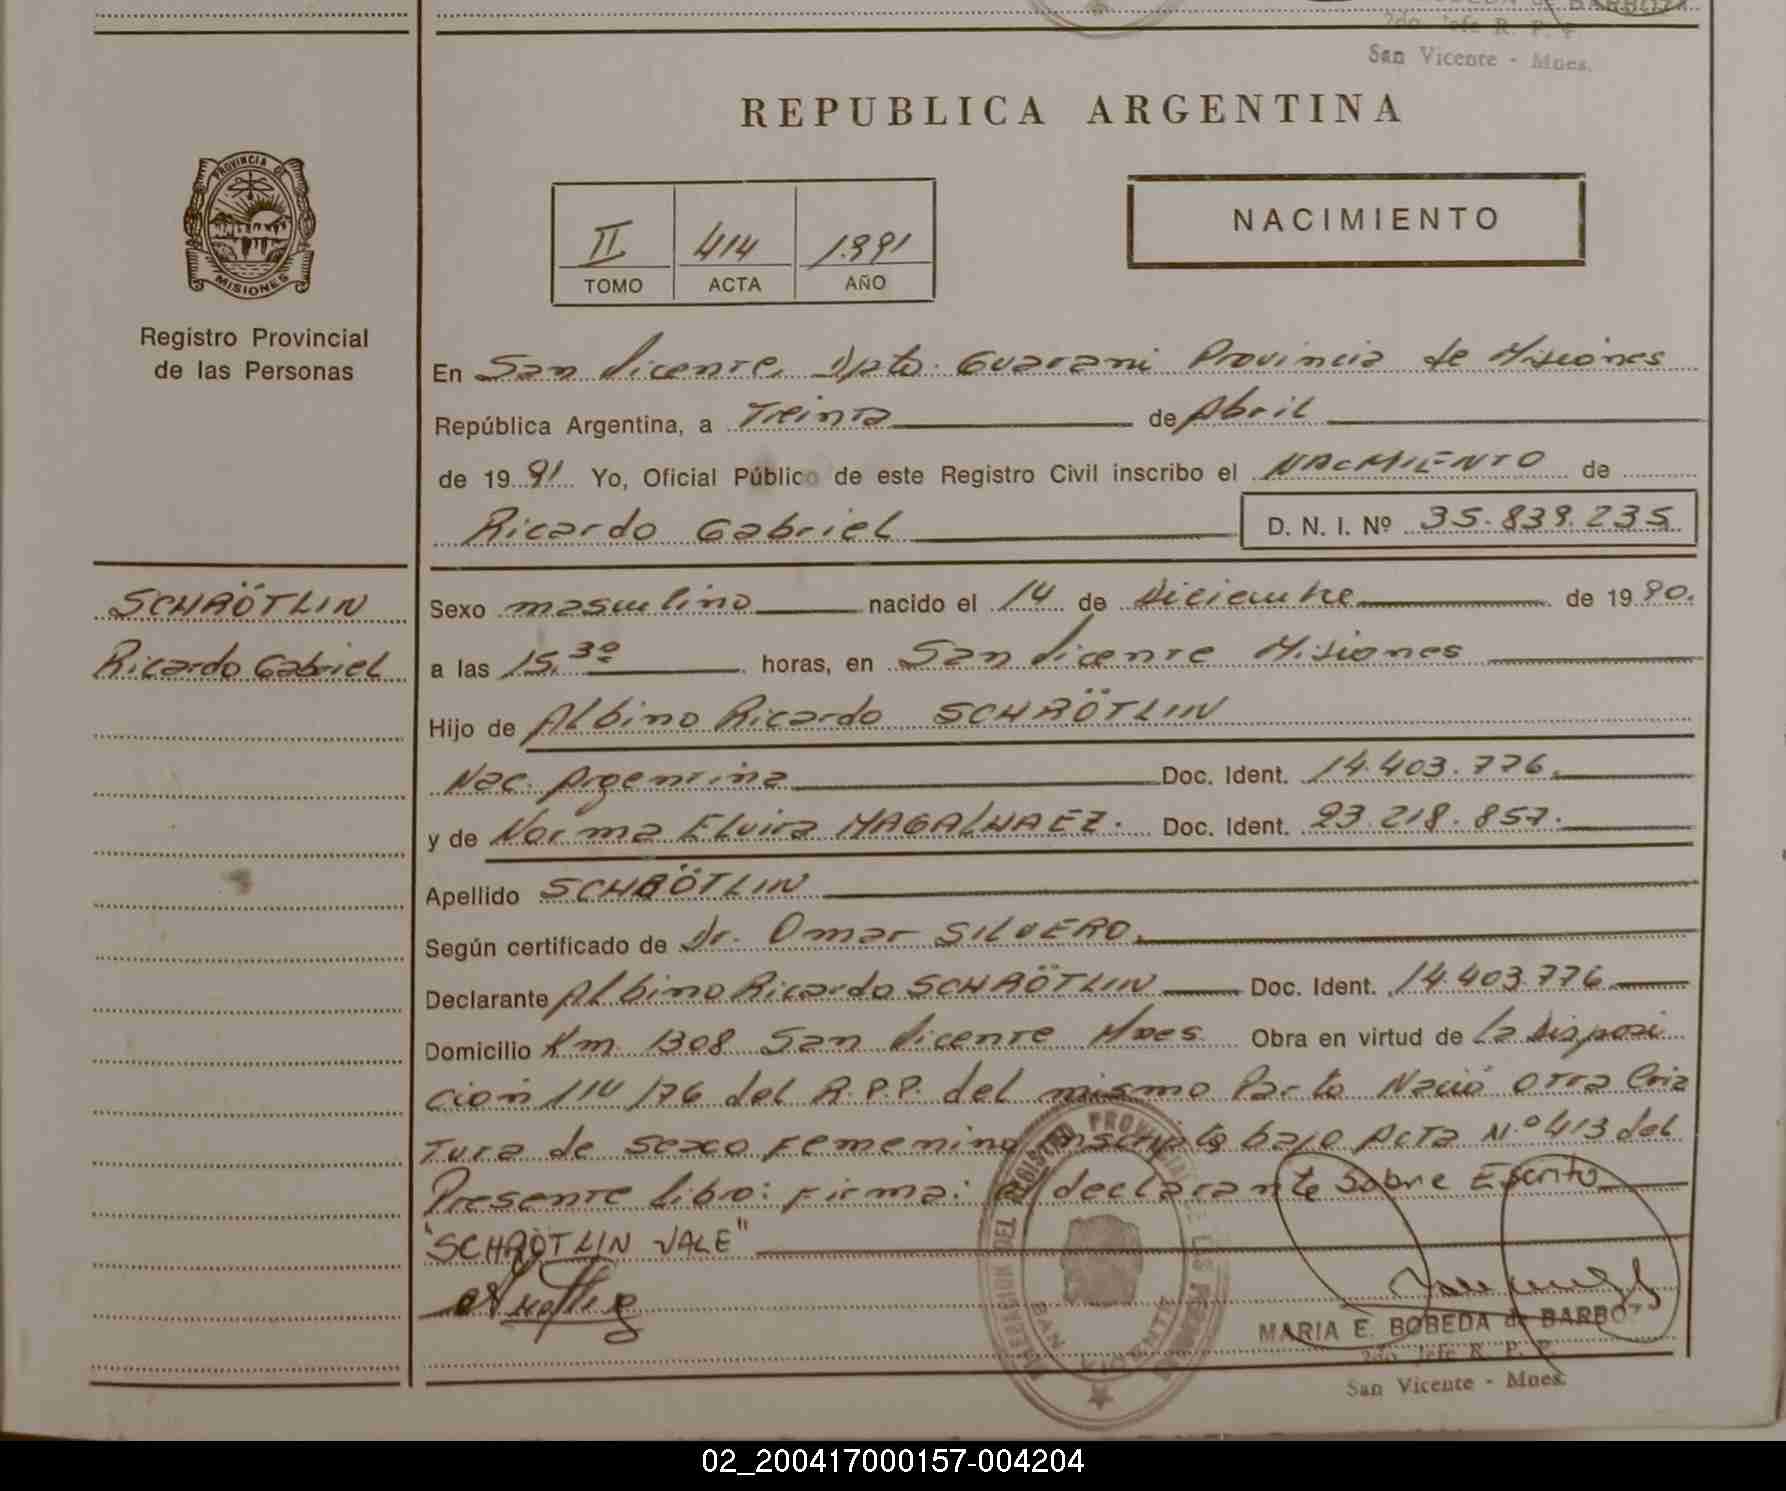 BARBOZA
2do. Jefe R. P. P.
San Vicente - Mnes.
REPUBLICA ARGENTINA
PROVINCIA DE
MISIONES
Registro Provincial
de las Personas
II 414 1.991
TOMO ACTA AÑO
NACIMIENTO
En San Vicente, Dpto. Guarani Provincia de Misiones
República Argentina, a Treinta de Abril
de 19 91 Yo, Oficial Público de este Registro Civil inscribo el NACMIENTO de
Ricardo Gabriel D. N. I. Nº 35.839.235
SCHRÖTLIN
Ricardo Gabriel
Sexo masculino nacido el 14 de Diciembre de 19 90.
a las 15.30 horas, en San Vicente Misiones
Hijo de Albino Ricardo SCHRÖTLIN
Nac. Argentina Doc. Ident. 14.403.776.
y de Norma Elvira MAGALHAEZ. Doc. Ident. 23.218.857.
Apellido SCHRÖTLIN
Según certificado de Dr. Omar SILVERO.
Declarante Albino Ricardo SCHRÖTLIN Doc. Ident. 14.403.776
Domicilio Km. 1308 San Vicente Mnes. Obra en virtud de La Disposi
ción 114/76 del R.P.P. del mismo Parto Nació otra Cria
tura de sexo femenino inscripta bajo Acta N.º 413 del
Presente libro: firma: el declarante Sobre Escrito
"SCHRÖTLIN VALE"
REGISTRO PROVINCIAL DE LAS PERSONAS
SAN VICENTE
MARIA E. BOBEDA de BARBOZA
2do. Jefe R. P. P.
San Vicente - Mnes.
02_200417000157-004204